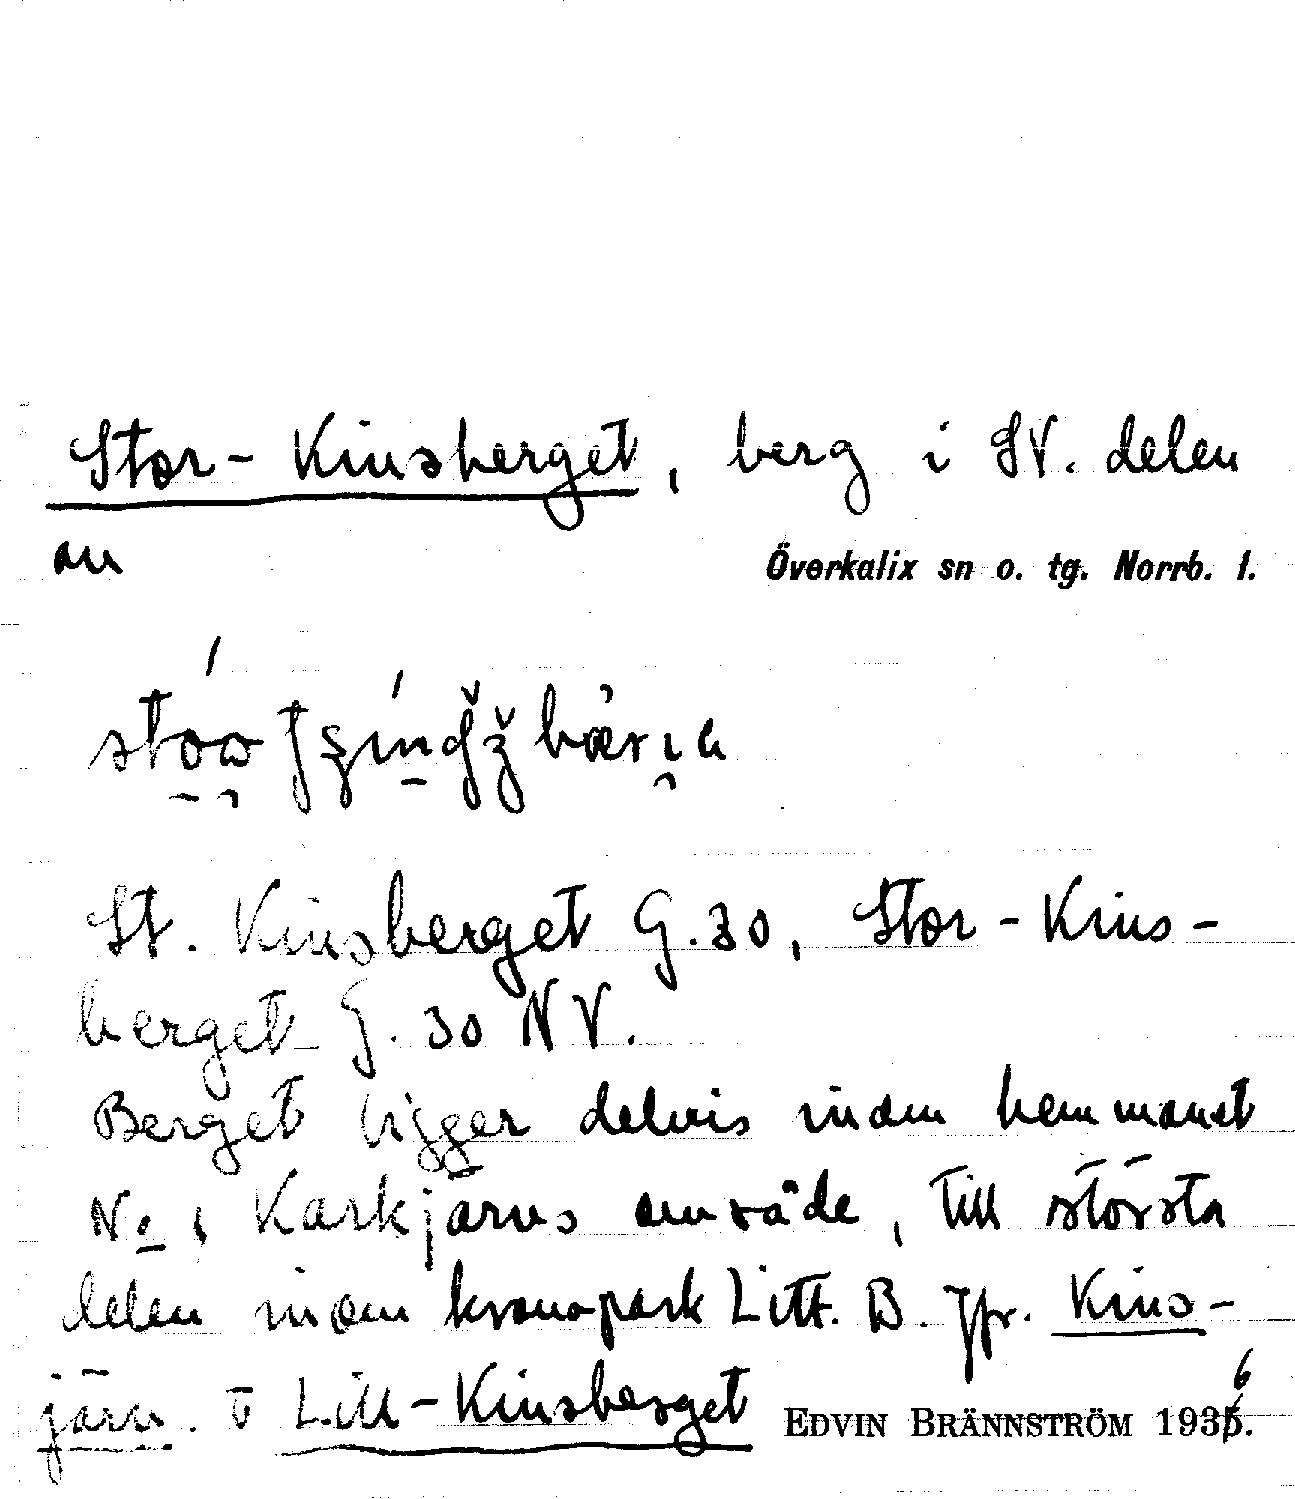 Stor-Kinsberget, berg i SV. delen
av
Överkalix sn o. tg. Norrb. l.
St. Kinsberget G.30, Stor-Kins-
berget G. 30 NV.
Berget ligger delvis inom hemmanet
No 1 Karkjärvs område, till största
delen inom kronopark Litt. B. Jfr. Kins-
järv. o Lill-Kinsberget
EDVIN BRÄNNSTRÖM 1936.